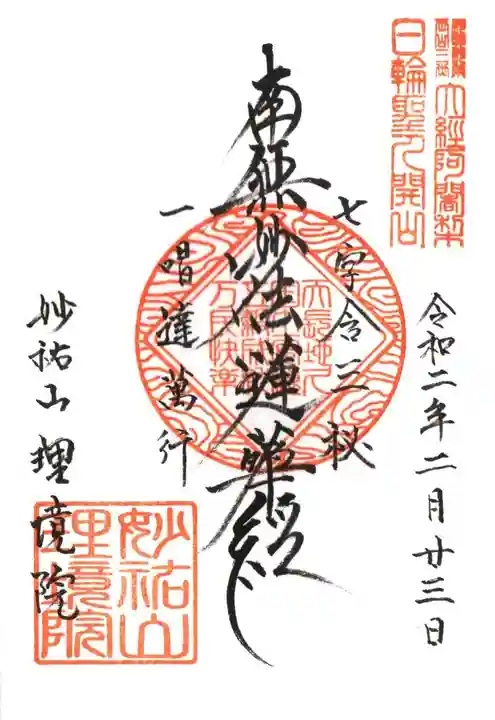 日輪聖人開山
令和二年二月廿三日
七字含三秘
南無妙法蓮華経
一唱達萬行
妙祐山 理境院
妙祐山
理境院